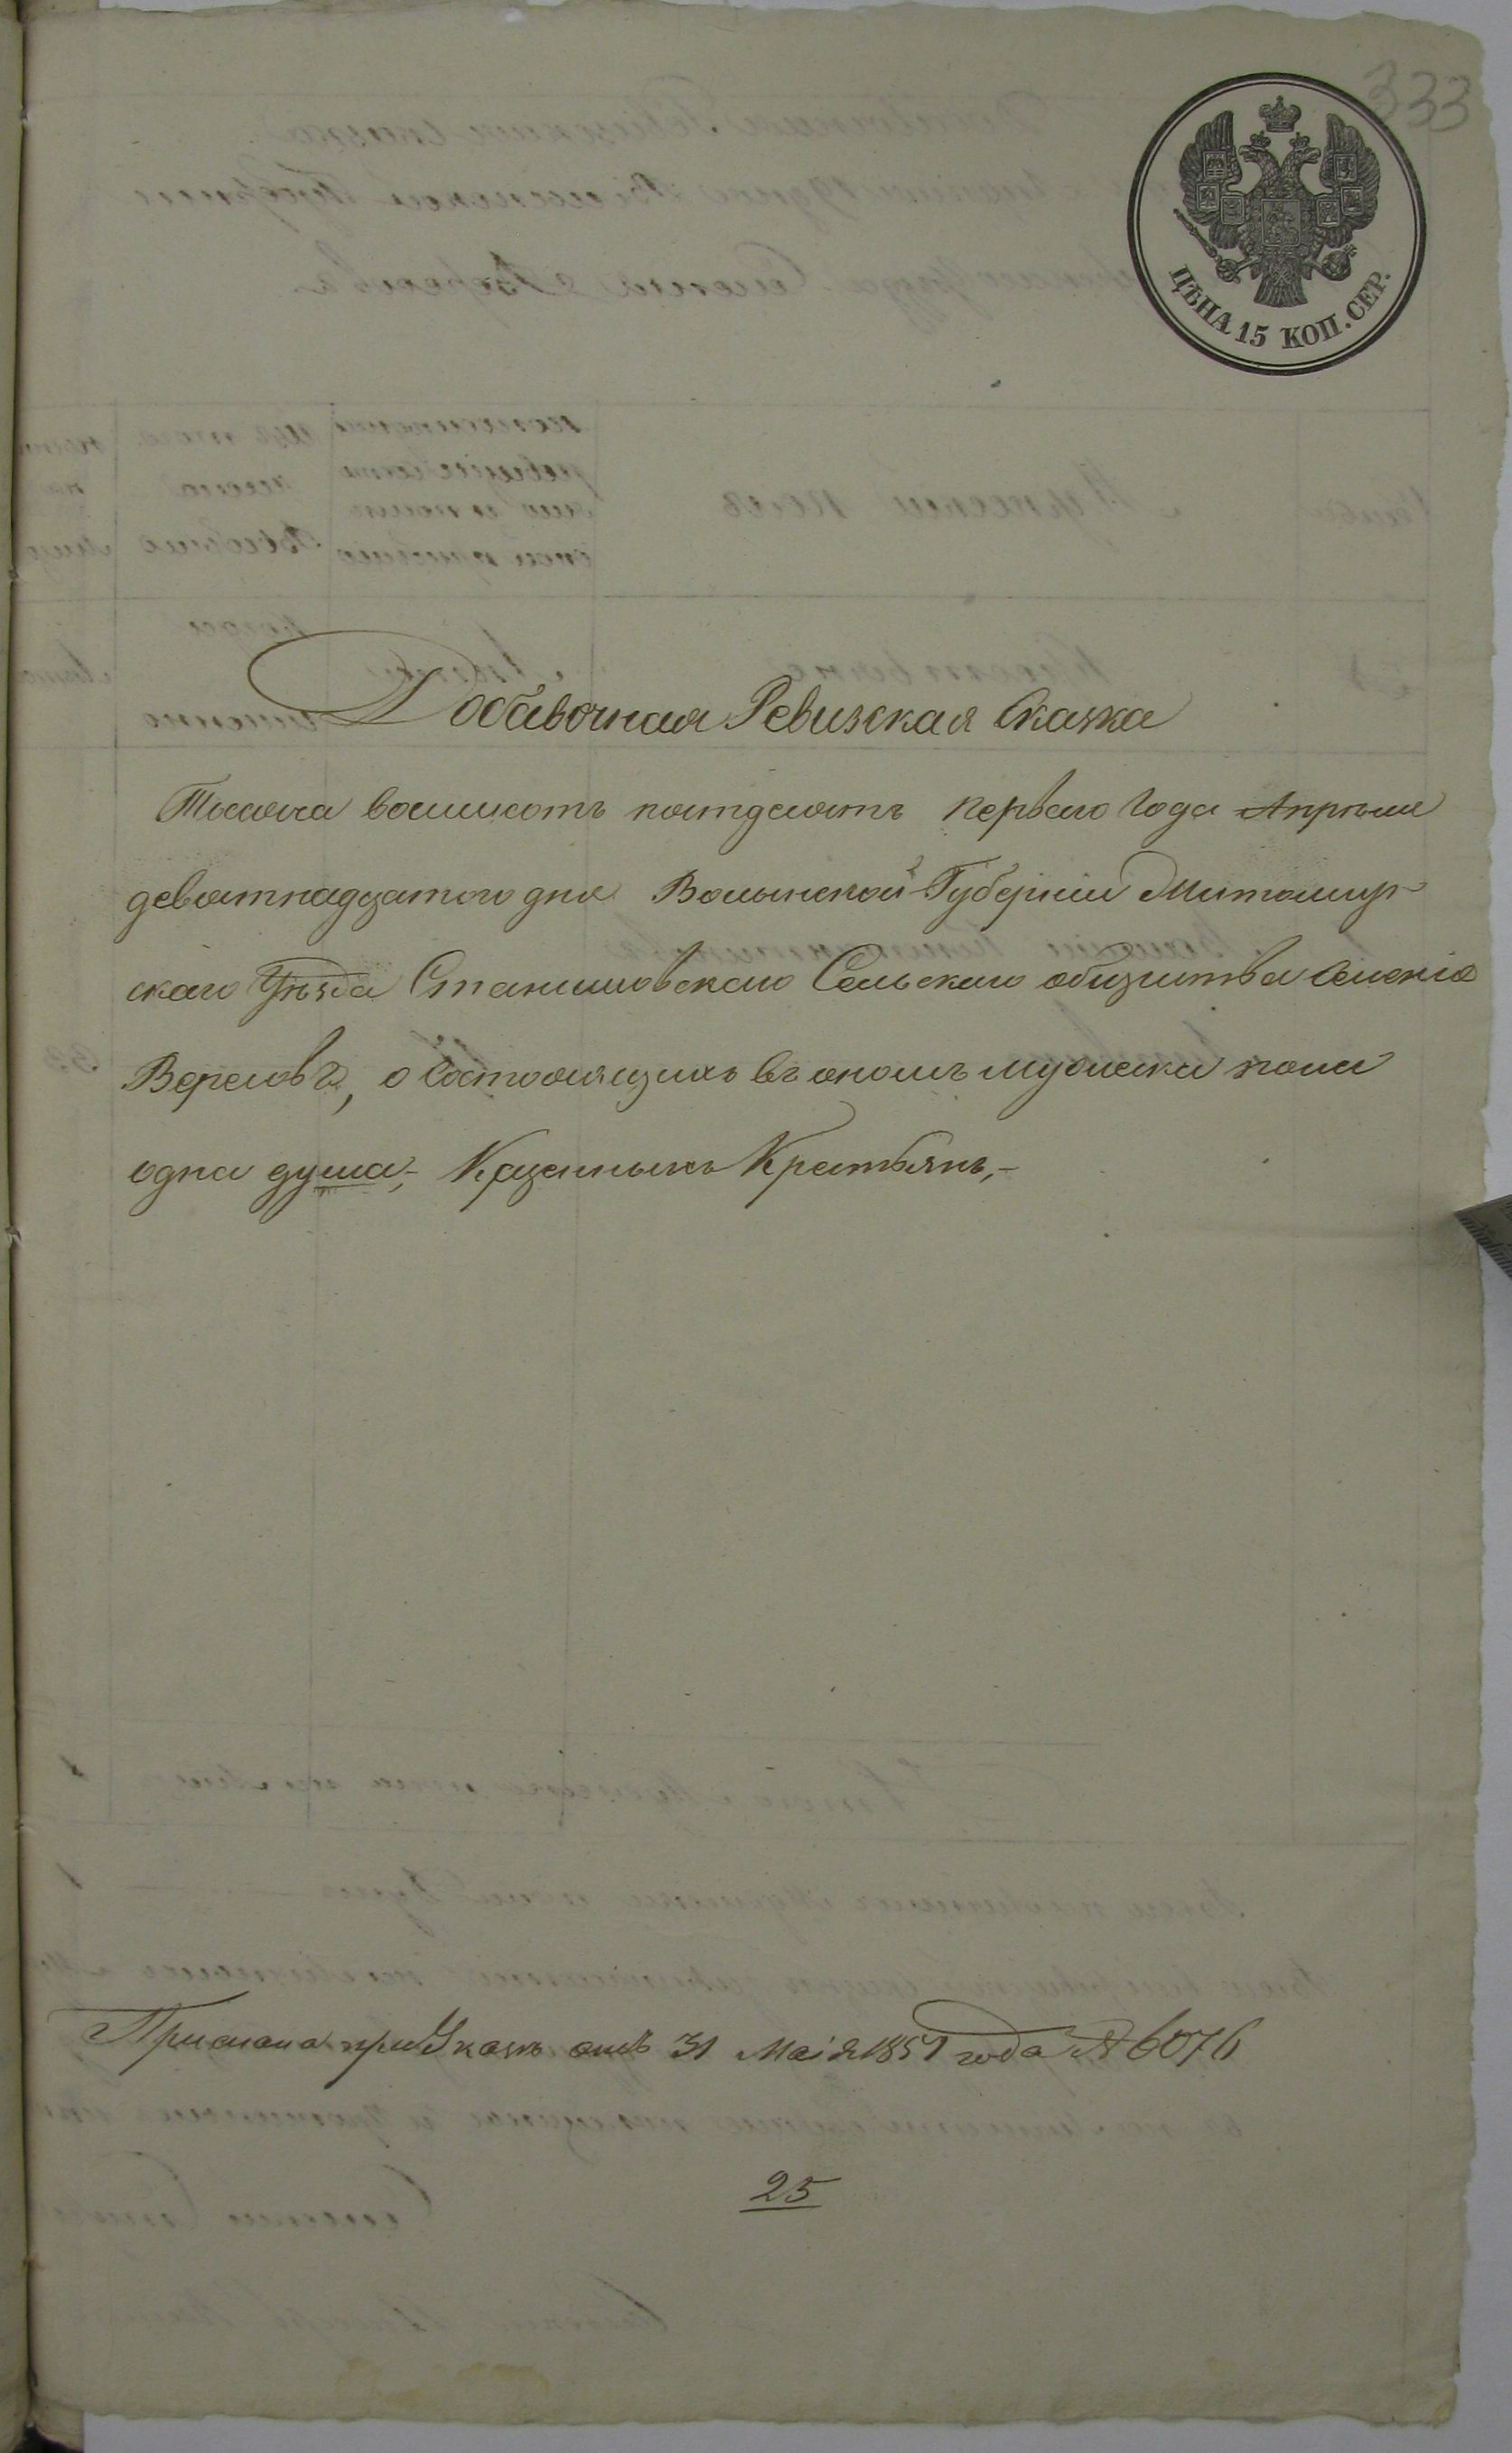 333
ЦѢНА 15 КОП. СЕР.
Добавочная Ревизская Сказка
Тысяча восьмсотъ пятдесятъ первого Года Апрѣля
девятнадцатого дня Волынской Губерніи Житомир-
скаго Уѣзда Станишовскаго Сельскаго общества Селенія
Вересовъ, о Состоящихъ въ ономъ мужеска пола
одна душа, Казенныхъ Крестьянъ,-
Прислана при Указѣ отъ 31 Маія 1851 года № 6076
25